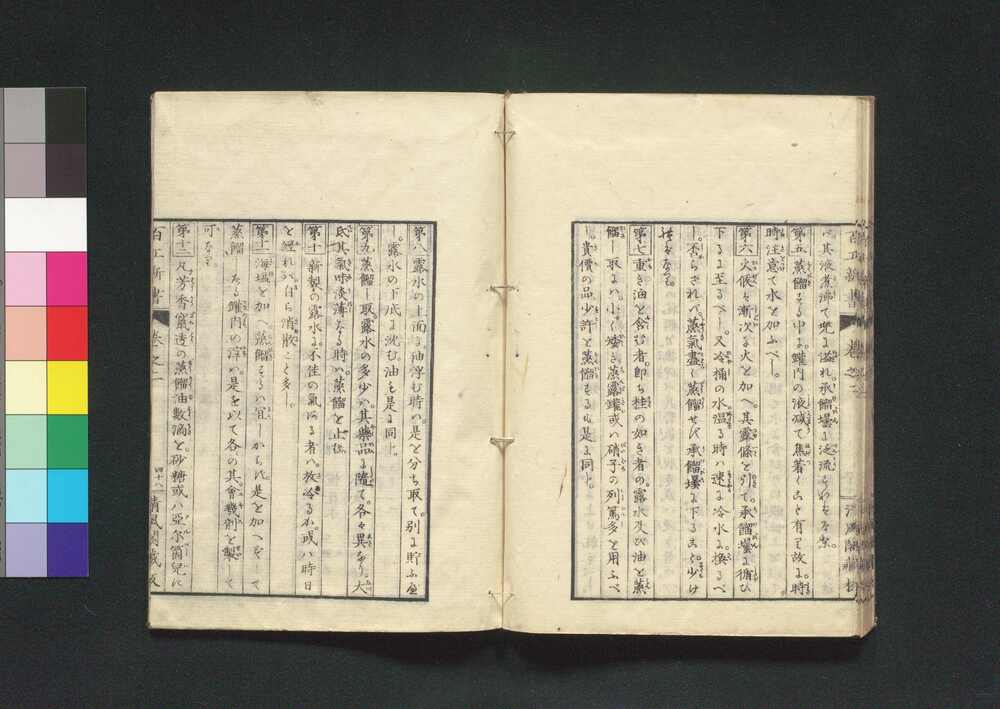 其液煮沸て兜に溢れ承餾壜に泛流
第五 蒸餾する中に罐内の液减て焦著くこと有る故に時
時注意て水を加ふべし
第六 火候は漸次に火を加へ其露條を引て承餾壜に滴ひ
下るに至るべし又冷桶の水温る時ハ速に冷水に換るべ
し否らざれバ蒸氣盡く蒸餾せず承餾壜に下ること少け
ればなり
第七 重き油を含む者即ち桂の如き者の露水及び油を蒸
餾し取るにハ小く矮き蒸露罐或ハ硝子の列篤多を用ふべ
し貴價の品少許を蒸餾するも是に同じ
第八 露水の上面に油浮む時ハ是を分ち取て別に貯ふ
露水の下底に沈む油も是に同じ
第九 蒸餾し取露水の多少ハ其藥品に隨て各々異なり大
氐其氣味淡薄なる時ハ蒸餾を止む
第十 新製の露水に不佳の氣ある者ハ放冷るか或ハ時日
を經れバ自ら消散こと多し
第十一 海塩を加へ蒸餾するハ宜しからず是を加へずして
蒸餾したる罐内の滓ハ是を以て各の其會幾剤を製して
可なり
第十二 凡芳香竄透の蒸餾油數滴を砂糖或ハ亞尓箇兒に
百工新書 卷之二 四十八 清風閣藏板